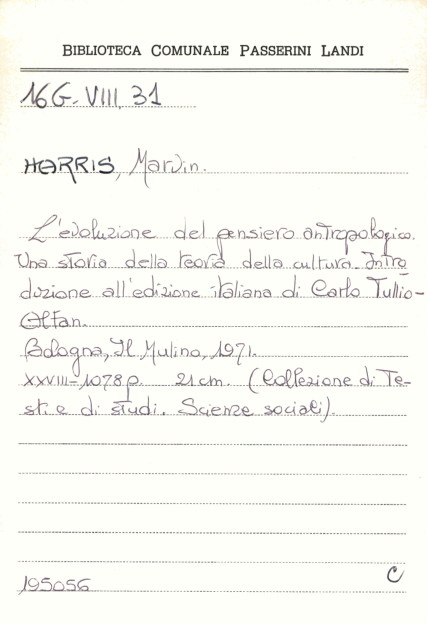 BIBLIOTECA COMUNALE PASSERINI LANDI
16G. VIII. 31
HARRIS, Marvin.
L'evoluzione del pensiero antropologico.
Una storia della teoria della cultura. Intro
duzione all'edizione italiana di Carlo Tullio-
Altan.
Bologna, Il Mulino, 1971.
XXVIII-1078 p. 21 cm. (Collezione di Te-
sti e di studi. Scienze sociali).
195056
C